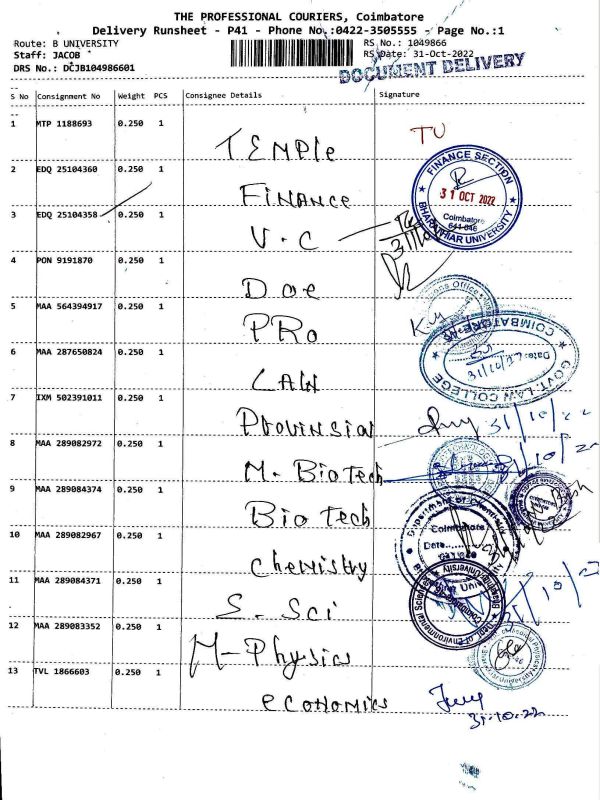 THE PROFESSIONAL COURIERS, Coimbatore
Delivery Runsheet - P41 - Phone No.:0422-3505555 - Page No.:1
Route: B UNIVERSITY
RS No.: 1049866
Staff: JACOB
RS Date: 31-Oct-2022
DRS No.: DCJB104986601
DOCUMENT DELIVERY
S No Consignment No Weight PCS Consignee Details Signature
1 MTP 1188693 0.250 1 TEMPle TU
2 EDQ 25104360 0.250 1 FINANCE
FINANCE SECTION
31 OCT 2022
Coimbatore
641 046
BHARATHIAR UNIVERSITY
3 EDQ 25104358 0.250 1 V.C
4 PON 9191870 0.250 1 Doe
5 MAA 564394917 0.250 1 PRO
6 MAA 287650824 0.250 1 LAW
COIMBATORE
Date:
31/10/22
GOVT. LAW COLLEGE
7 IXM 502391011 0.250 1 Provinsial 31/10/22
8 MAA 289082972 0.250 1 M. BioTech
9 MAA 289084374 0.250 1 Bio Tech
10 MAA 289082967 0.250 1 chemistry
Department of
Coimbatore
Date
11 MAA 289084371 0.250 1 S. Sci
Dept. of Environmental Sciences
12 MAA 289083352 0.250 1 M-Physics
13 TVL 1866603 0.250 1 economics
31.10.22